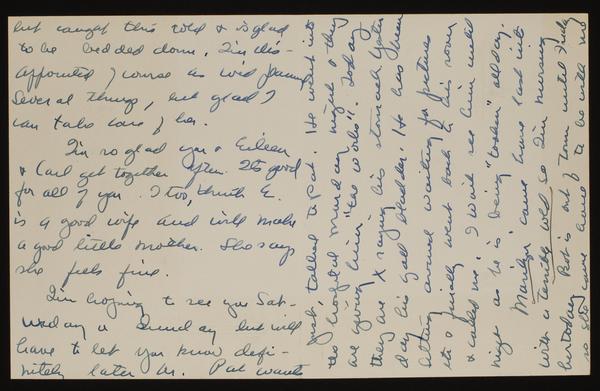 but caught this cold & is glad
to be bedded down. I'm dis-
appointed of course as we'd planned
several things, but glad I
can take care of her.
I'm so glad you & Eileen
& Carl get together often. It's good
for all of you. I too, think E.
is a good wife and will make
a good little mother. She says
she feels fine.
I'm hoping to see you Sat-
urday or Sunday but will
have to let you know defi-
nitely later on. Pat wants
just, talked to Pat. He went into
the hospital Monday night & they
are giving him "the works". Today
they are X raying his stomach yester
day his gall bladder. He has been
sitting around waiting for pictures
etc & finally went back to his room
& called me. I won't see him until
night as he is being "tooken" all day.
Marilyn came home last nite
with a terrible cold so I'm nursing
her today. Bob is out of town until Friday
so she came home to be with me